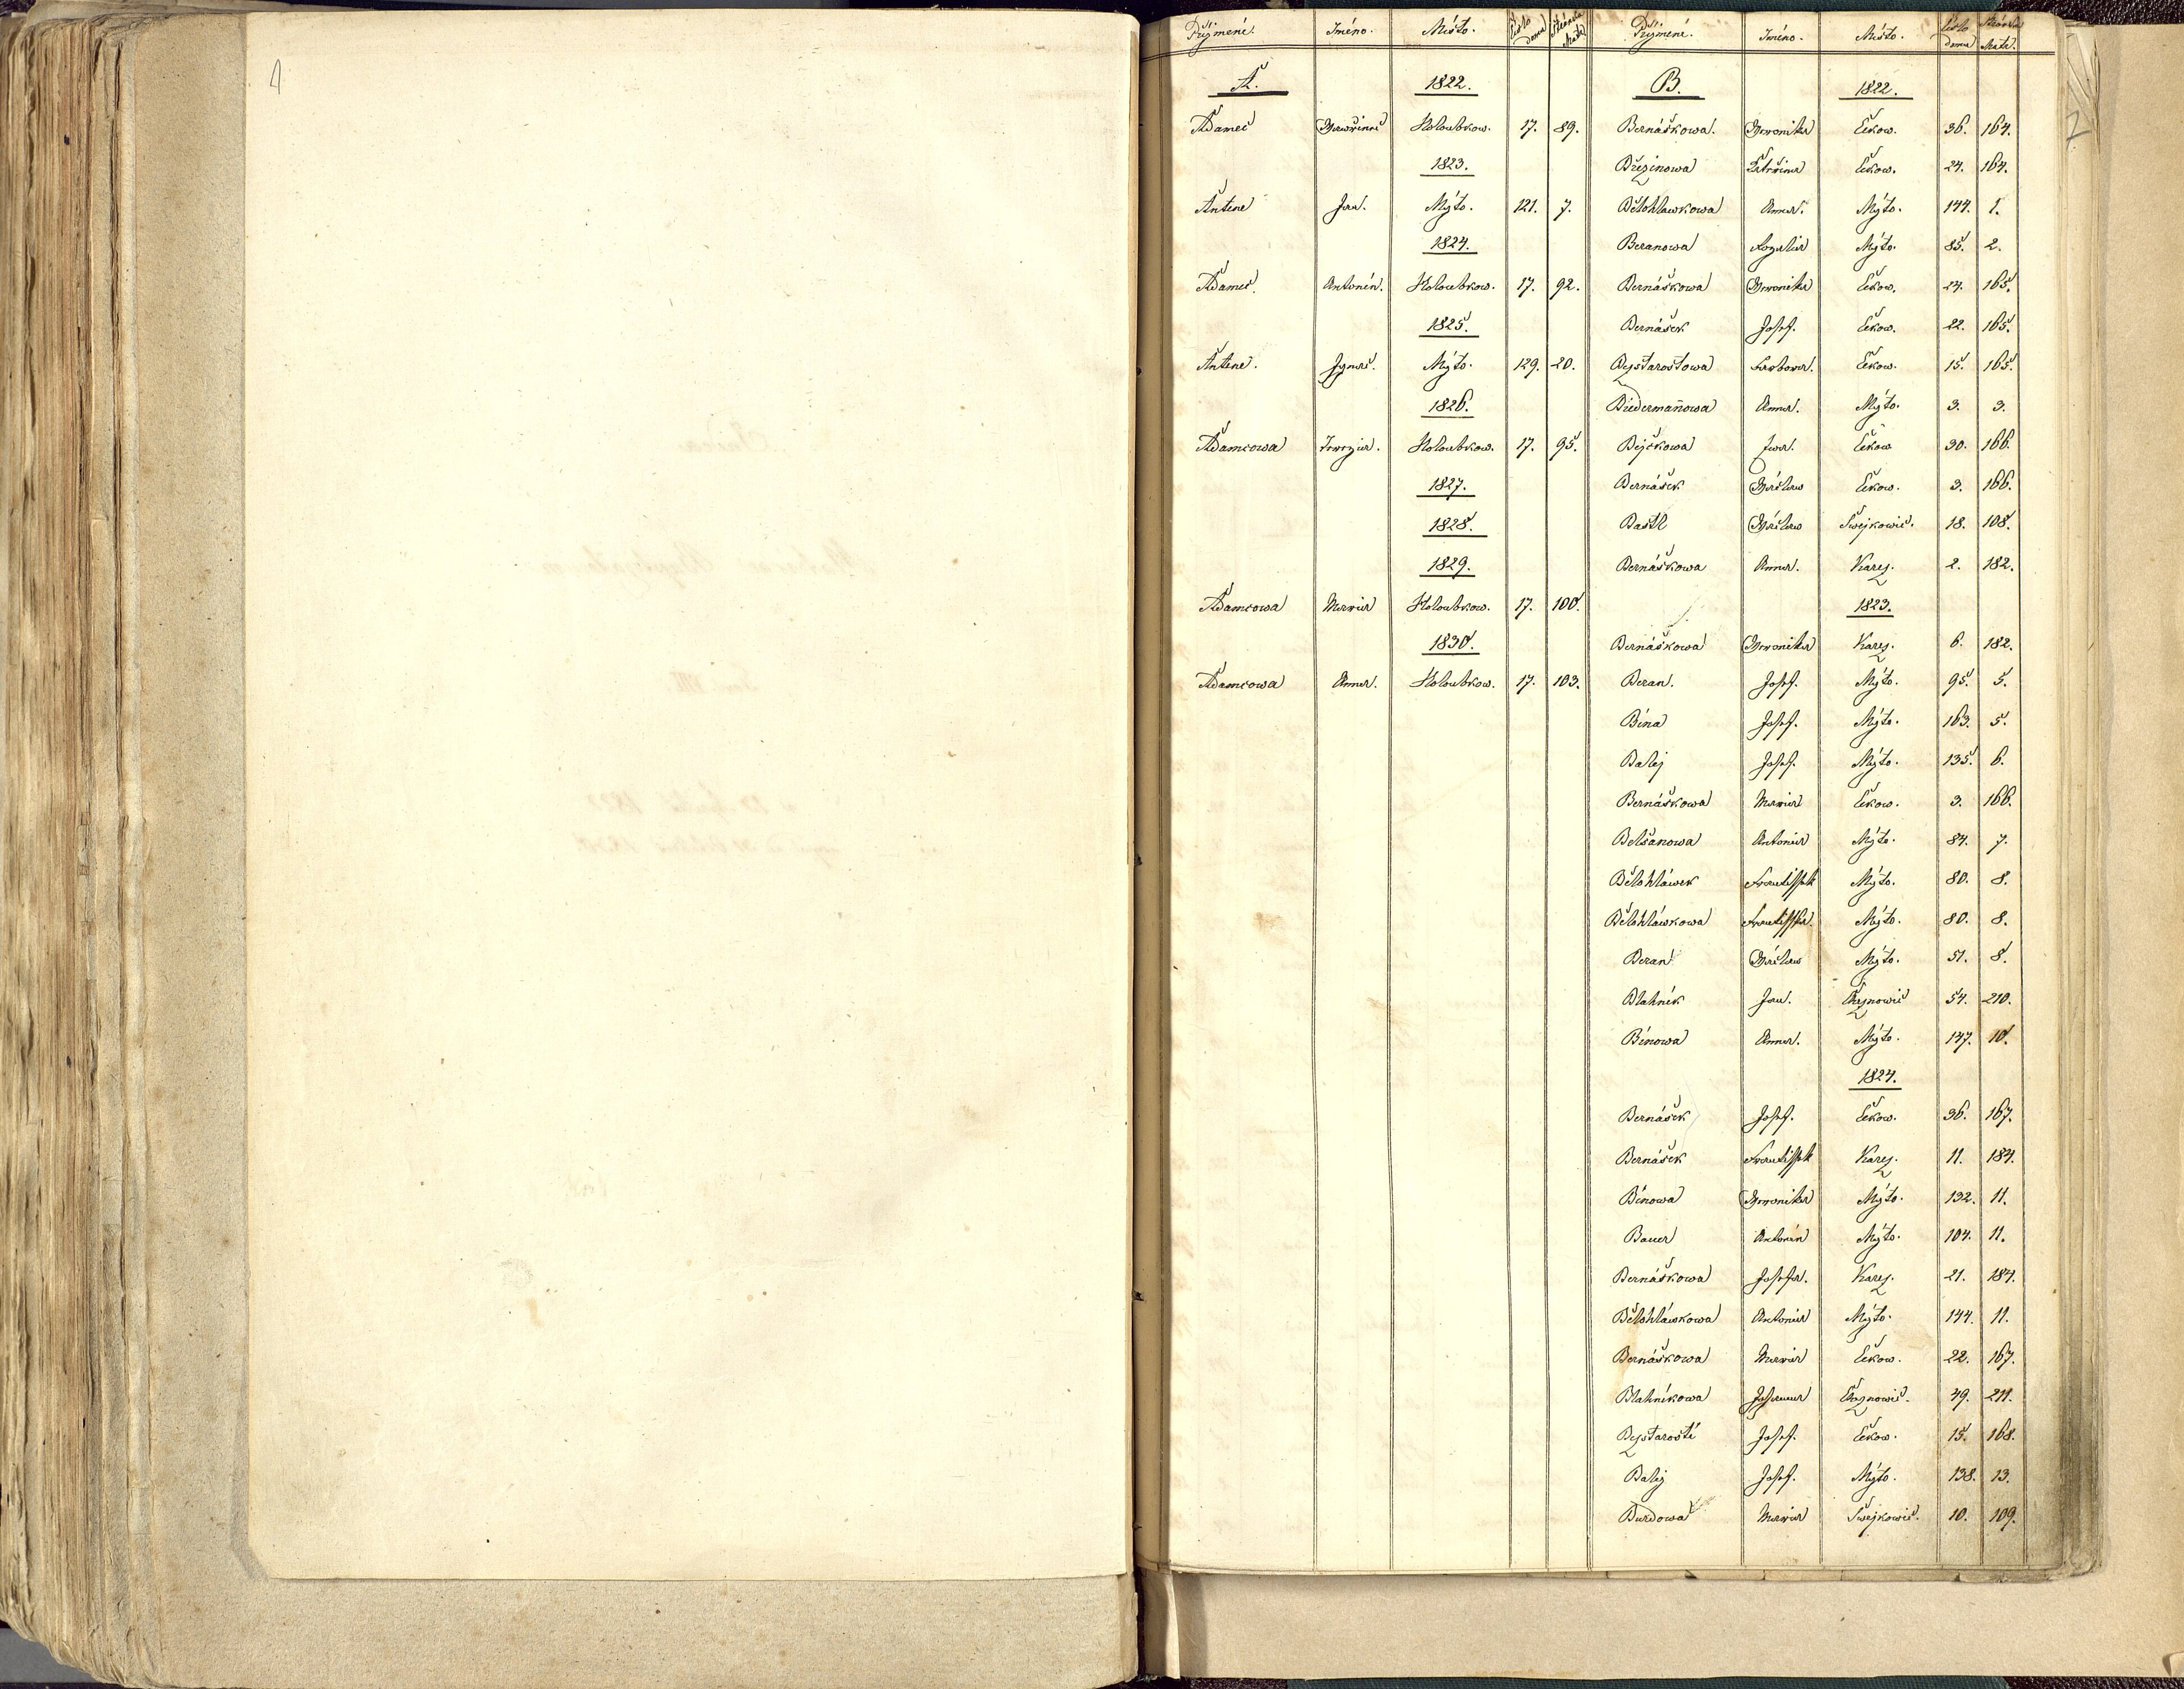 1
Přijmení. Jméno. Místo. Číslo domu Stránka Matr.
A. 1822.
Adamec Wawřinec Holoubkow. 17. 89.
1823.
Antene Jan. Mýto. 121. 7.
1824.
Adamec Antonín. Holoubkow. 17. 92.
1825.
Antene. Ignac. Mýto. 129. 20.
1826.
Adamcowa Terezia. Holoubkow. 17. 95.
1827.
1828.
1829.
Adamcowa Maria Holoubkow. 17. 100.
1830.
Adamcowa Anna. Holoubkow. 17. 103.
Přijmení. Jméno. Místo. Číslo domu Stránka Matr.
2
B. 1822.
Bernáškowa. Weronika Čekow. 36. 164.
Březinowa Kateřina Čekow. 24. 164.
Bělohlawkowa Anna. Mýto. 144. 1.
Beranowa Rozalia Mýto. 85. 2.
Bernáškowa Weronika Čekow. 24. 165.
Bernášek Josef. Čekow. 22. 165.
Bystarostowa Barbora. Čekow. 15. 165.
Biedermañowa Anna. Mýto. 3. 3.
Bejčkowa Ewa. Čekow 30. 166.
Bernášek Wáclaw Čekow. 3. 166.
Bastl Wáclaw Swejkowic. 18. 108.
Bernáškowa Anna. Karez. 2. 182.
1823.
Bernáškowa Weronika Karez. 6. 182.
Beran. Josef. Mýto. 95. 5.
Bína Josef. Mýto. 163. 5.
Balej Josef. Mýto. 135. 6.
Bernáškowa Maria Čekow. 3. 166.
Belšanowa Antonia Mýto. 84. 7.
Bělohláwek Frantissek Mýto. 80. 8.
Bělohláwkowa Frantisska. Mýto. 80. 8.
Beran Wáclaw Mýto. 51. 8.
Blahník Jan. 54. 210.
Bínowa Anna. Mýto. 147. 10.
1824.
Bernášek Josef. Čekow. 36. 167.
Bernášek Frantissek Karez. 11. 184.
Bínowa Weronika Mýto. 132. 11.
Bauer Antonín Mýto. 104. 11.
Bernáškowa Josefa. Karez. 21. 184.
Bělohláwkowa Antonia Mýto. 144. 11.
Bernáškowa Maria Čekow. 22. 167.
Blahníkowa Johanna 49. 211.
Bystarosti Josef. Čekow. 15. 168.
Balej Josef. Mýto. 138. 13.
Burdowa Maria Swejkowic. 10. 109.